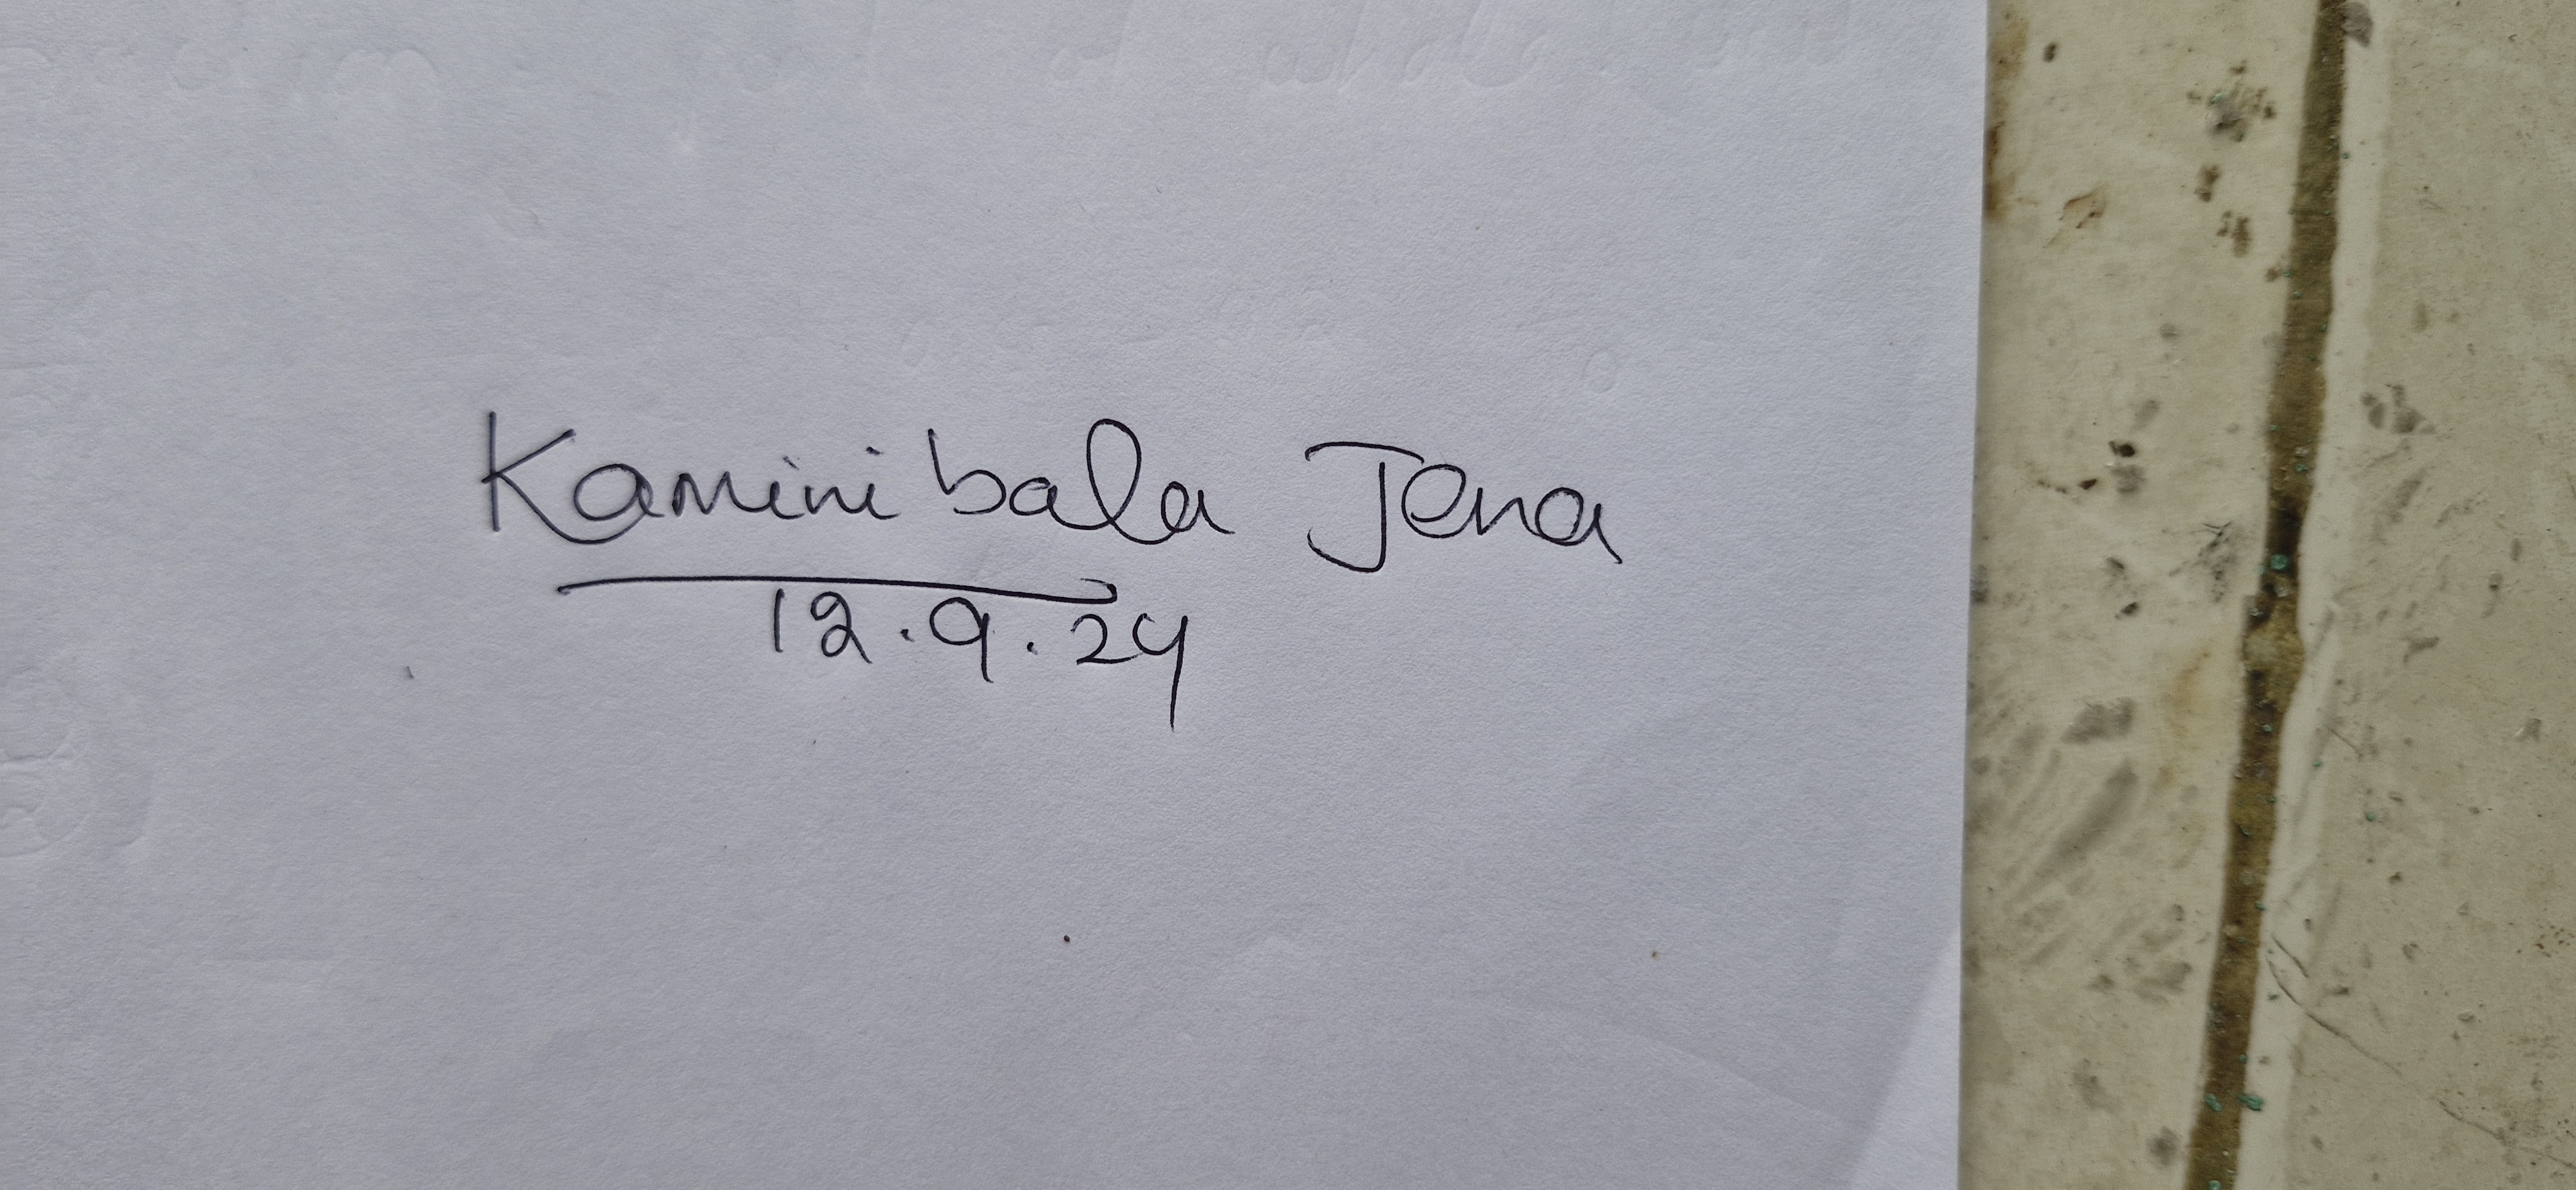 Kaminibala Jena
12.9.24